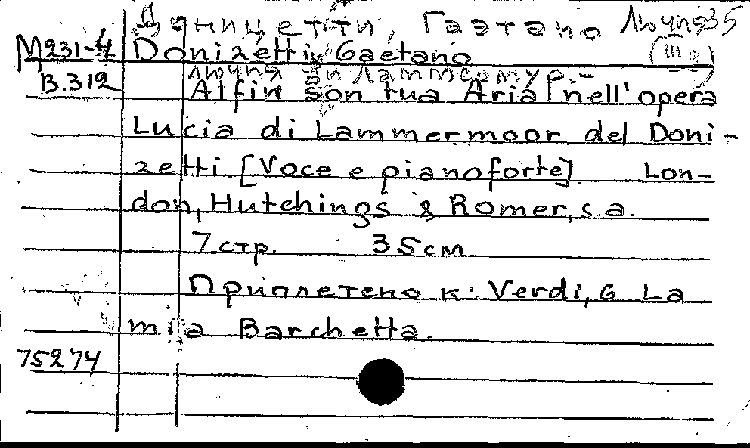 Доницетти, Гаэтано
М231-4 Donizetti, Gaetano
В.312 Alfin son tua Aria nell'opera
Lucia di Lammermoor del Doni-
zetti [Voce e pianoforte] Lon-
don, Hutchings & Romer, s.a.
7 стр. 35см
Приплетено к: Verdi, G La
mia Barchetta.
75274